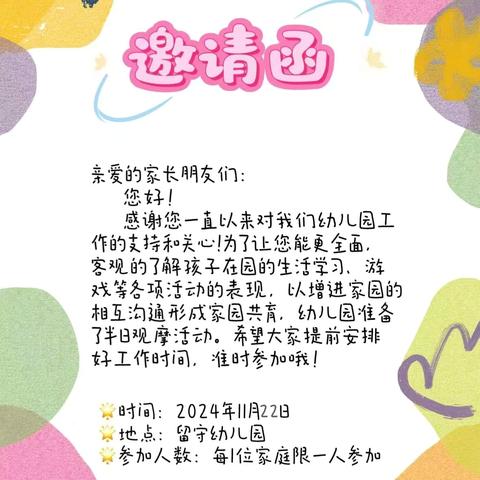 邀请函
亲爱的家长朋友们:
您好!
感谢您一直以来对我们幼儿园工
作的支持和关心!为了让您能更全面,
客观的了解孩子在园的生活学习、游
戏等各项活动的表现,以增进家园的
相互沟通形成家园共育,幼儿园准备
了半日观摩活动。希望大家提前安排
好工作时间,准时参加哦!
时间:2024年11月22日
地点:留守幼儿园
参加人数:每1位家庭限一人参加